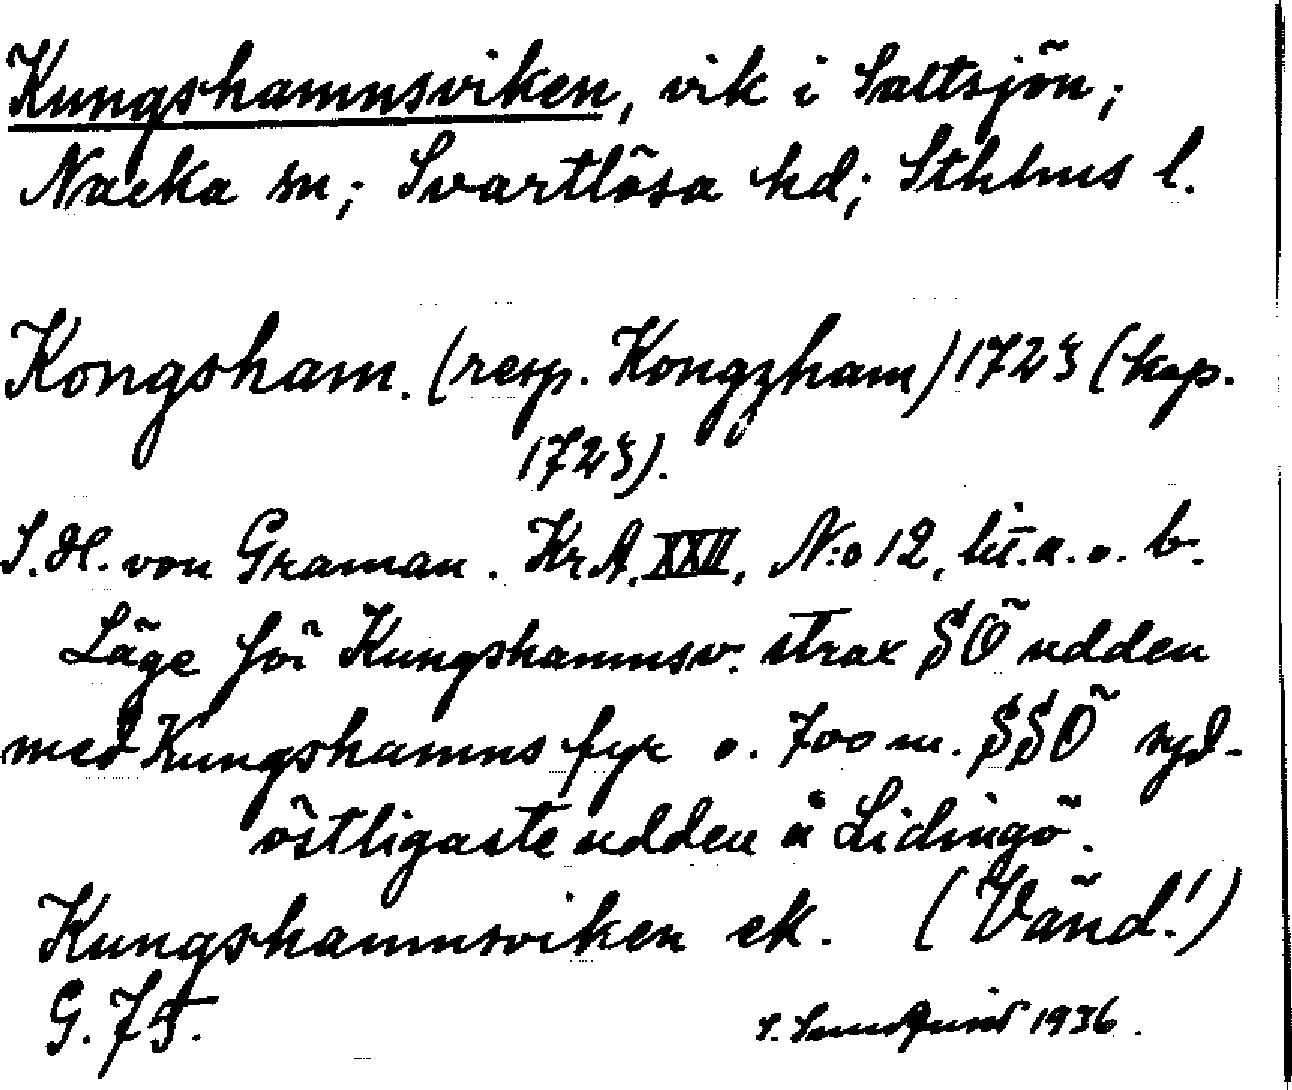 Kungshamnsviken, vik i Saltsjön;
Nacka sn; Svartlösa hd; Sthlms l.
Kongsham. (resp. Kongzham) 1723 (kop.
1723).
S.H. von Graman. Kr.A. XXII, N:o 12, lit. a. o. b.
Läge för Kungshamnsv. strax SÖ udden
med Kungshamns fyr o. 700 m. SSÖ syd-
östligaste udden å Lidingö.
Kungshamnsviken ek. (Vänd!)
G. 75.
1936.